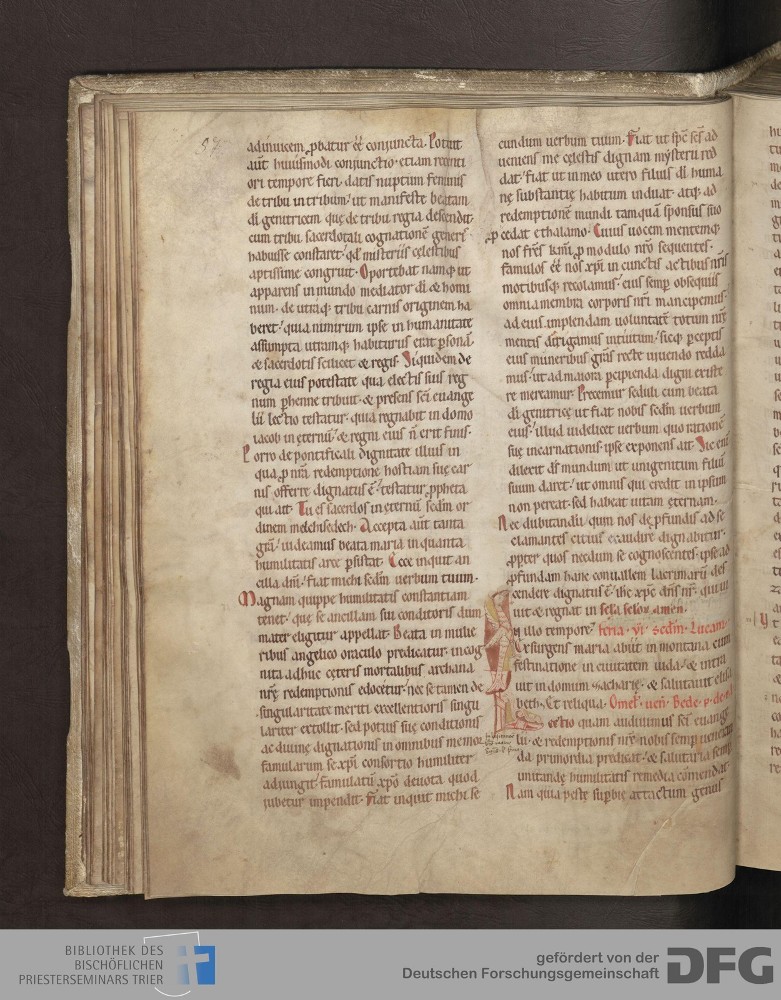 97
adinuicem ꝓbatur eē coniuncta. Potuit
aūt huiusmodi coniunctio etiam recenti
ori tempore fieri datis nuptum feminis
de tribu in tribum ut manifeste beatam
di genitricem quę de tribu regia descendit
cum tribu sacerdotali cognationē generis
habuisse constaret qd misteriis cęlestibus
aptissime congruit. Oportebat namq; ut
apparens in mundo mediator di & homi
num de utraq; tribu carnis originem ha
beret quia nimirum ipse in humanitate
assumpta utramq; habiturus erat psonā
& sacerdotis scilicet & regis. Siquidem de
regia eius potestate qua electis suis reg
num phenne tribuit & presens sci euange
lii lectio testatur quia regnabit in domo
iacob in ęternū & regni eius n̄ erit finis.
Porro de pontificali dignitate illius in
qua ꝓ nrā redemptione hostiam suę car
nis offerre dignatus ē testatur ꝓpheta
qui ait. Tu es sacerdos in ęternū sedm or
dinem melchisedech. Accepta aūt tanta
grā uideamus beata maria in quanta
humilitatis arce psistat. Ecce inquit an
cilla dnī fiat michi sedm uerbum tuum.
Magnam quippe humilitatis constantiam
tenet quę se ancillam sui conditoris dum
mater eligitur appellat. Beata in mulie
ribus angelico oraculo predicatur incog
nita adhuc cęteris mortalibus archana
nrę redemptionis edocetur nec se tamen de
singularitate meriti excellentioris singu
lariter extollit sed potius suę conditionis
ac diuinę dignationis in omnibus memor
famularum se xpi consortio humiliter
adiungit famulatū xpo deuota quod
iubetur impendit. Fiat inquit michi se
cundum uerbum tuum. Fiat ut spc scs ad
ueniens me cęlestis dignam mysterii red
dat fiat ut in meo utero filius di huma
nę substantię habitum induat atq; ad
redemptionē mundi tamquā sponsus suo
ꝓcedat e thalamo. Cuius uocem mentemq;
nos frēs kmi ꝓ modulo nrō sequentes
famulos eē nos xpi in cunctis actibus nris
motibusq; recolamus eius semp obsequiis
omnia membra corporis nrī mancipemus
ad eius implendam uoluntatē totum nrē
mentis dirigamus intuitum sicq; pceptis
eius muneribus grās recte uiuendo redda
mus ut ad maiora pcipienda digni existe
re mereamur. Precemur seduli cum beata
di genitrice ut fiat nobis sedm uerbum
eius illud uidelicet uerbum quo rationē
suę incarnationis ipse exponens ait. Sic eni
dilexit ds mundum ut unigenitum filiū
suum daret ut omnis qui credit in ipsum
non pereat sed habeat uitam ęternam.
Nec dubitandū quin nos de pfundis ad se
clamantes citius exaudire dignabitur
ꝓpter quos necdum se cognoscentes ipse ad
ꝓfundam hanc conuallem lacrimarū des
cendere dignatus ē ihc xpc dns nr qui ui
uit & regnat in scla sclou amen.
In illo tempore feria vi sedm Lucam
Exsurgens maria abiit in montana cum
festinatione in ciuitatem iuda & intra
uit in domum zacharię & salutauit elisa
beth. Et reliqua. Omel uen Bede p de
Lectio quam audiuimus sci euange
lii & redemptionis nrē nobis semp ueneranda
da primordia predicat & salutaria semp
imitandę humilitatis remedia cōmendat.
Nam quia peste supbię attactum genus
BIBLIOTHEK DES
BISCHÖFLICHEN
PRIESTERSEMINARS TRIER
gefördert von der
Deutschen Forschungsgemeinschaft
DFG